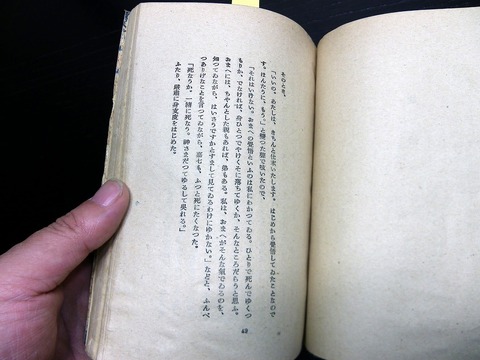 そのとき、
「いいの。あたしは、きちんと仕末いたします。はじめから覺悟してゐたことなので
す。ほんたうに、もう。」と變つた聲で呟いたので、
「それはいけない。おまへの覺悟といふのは私にわかつてゐる。ひとりで死んでゆくつ
もりか、でなければ、身ひとつでやけくそに落ちてゆくか、そんなところだらうと思ふ。
おまへには、ちやんとした親もあれば、弟もある。私は、おまへがそんな氣でゐるのを、
知つてゐながら、はいさうですかとすまして見てゐるわけにゆかない。」などと、ふんべ
つありげなことを言つてゐながら、嘉七も、ふつと死にたくなつた。
「死なうか。一緒に死なう。神さまだつてゆるして吳れる。」
ふたり、嚴肅に身支度をはじめた。
49